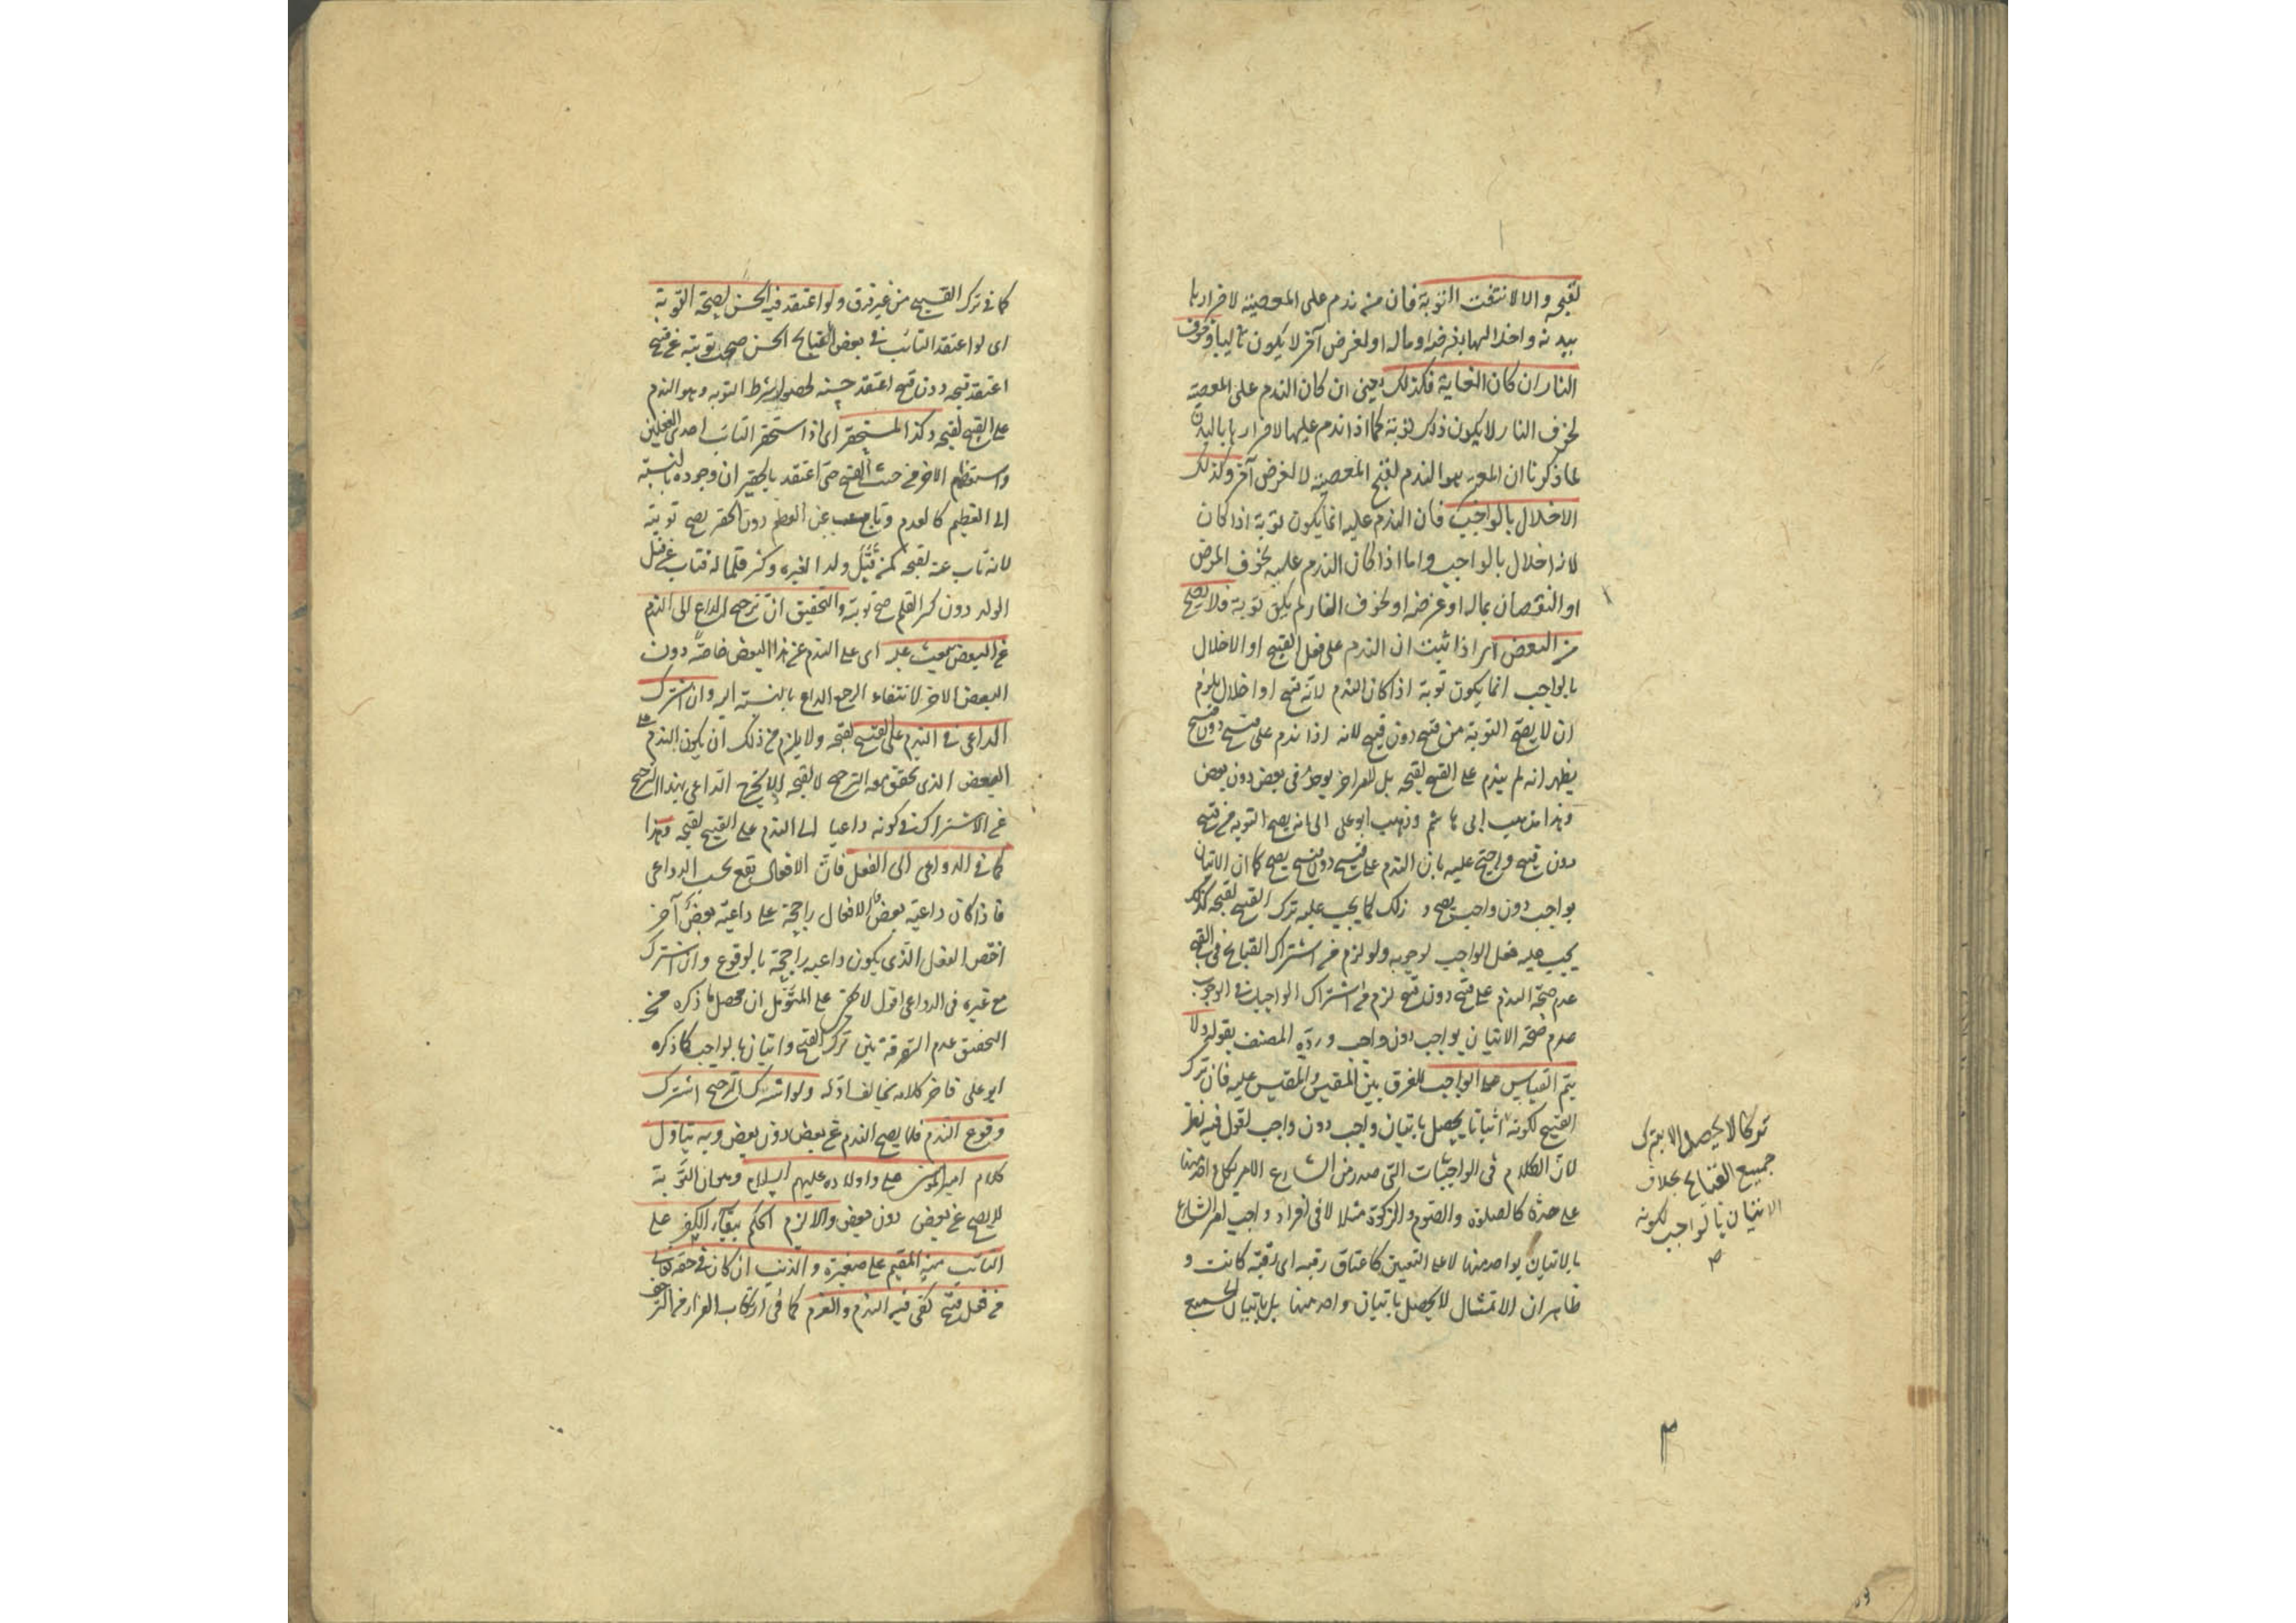 لقبحه والا لانتفت التوبة فان من ندم على المعصية لاضرارها
ببدنه واخلالها بغرضه او ماله او لغرض آخر لا يكون تائبا وخوف
النار ان كان الغاية فكذلك يعنى ان كان الندم على المعصية
لخوف النار لا يكون ذلك توبة كما اذا ندم عليها لاضرارها بالبدن
لما ذكرنا ان المعتبر هو الندم لقبح المعصية لا لغرض آخر وكذلك
الاخلال بالواجب فان الندم عليه انما يكون توبة اذا كان
لانه اخلال بالواجب واما اذا كان الندم عليه لخوف المرض
او النقصان بماله او عرضه او لخوف النار لم يكن توبة فلا يصح
من البعض اذا ثبت ان الندم على فعل القبيح او الاخلال
بالواجب انما يكون توبة اذا كان الندم لانه قبيح او اخلال يلزم
ان لا يصح التوبة من قبيح دون قبيح لانه اذا ندم على قبيح دون قبيح
يظهر انه لم يندم على القبيح لقبحه بل لامر آخر يوجد فى بعض دون بعض
وهذا مذهب ابى هاشم وذهب ابو على الى انه يصح التوبة من قبيح
دون قبيح واحتج عليه بان الندم على قبيح دون قبيح يصح كما ان الاتيان
بواجب دون واجب يصح و ذلك كما يجب عليه ترك القبيح لقبحه كذلك
يجب عليه فعل الواجب لوجوبه ولو لزم من اشتراك القبايح فى القبح
عدم صحة الندم على قبيح دون قبيح لزم من اشتراك الواجبات فى الوجوب
عدم صحة الاتيان بواجب دون واجب ورده المصنف بقوله ولا
يتم القياس على الواجب للفرق بين المقيس والمقيس عليه فان ترك
القبيح لكونه اثباتا يحصل باتيان واجب دون واجب اقول فيه نظر
لان الكلام فى الواجبات التى صدر من الشارع الامر بكل واحد منها
على حدة كالصلوة والصوم والزكوة مثلا لا فى افراد واجب امر الشارع
بالاتيان بواحد منها لا على التعيين كاعتاق رقبة اى رقبة كانت و
ظاهر ان الامتثال لا يحصل باتيان واحد منها بل باتيان الجميع
تركا لا يحصل الا بترك
جميع القبايح بخلاف
الاتيان بالواجب لكونه
كما فى ترك القبيح من غير فرق ولو اعتقد فيه الحسن لصحة التوبة
اى لو اعتقد التائب فى بعض القبايح الحسن صحت توبته عن قبيح
اعتقد قبحه دون قبيح اعتقد حسنه لحصول شرط التوبه وهو الندم
على القبيح لقبحه وكذا المستحقر اى اذا استحقر التائب احد الفعلين
واستعظم الاخر من حيث القبح حتى اعتقد بالحقير ان وجوده بالنسبة
الى العظيم كالعدم وتاب عن العظيم دون الحقير يصح توبته
لانه تاب عنه لقبحه كمن قتل ولدا لغيره وكسر قلما له فتاب عن قتل
الولد دون كسر القلم صح توبته والتحقيق ان ترجح الداعى الى الندم
عن البعض يبعث عليه اى على الندم عن هذا البعض خاصة دون
البعض الاخر لانتفاء الرجح الداعى بالنسبة اليه وان اشترك
الداعى فى الندم على القبيح لقبحه ولا يلزم من ذلك ان يكون الندم على
البعض الذى تحقق معه الترجح لا لقبحه اذ لا يخرج الداعى بهذا الترجح
عن الاشتراك فى كونه داعيا الى الندم على القبيح لقبحه وهذا
كما فى الدواعى الى الفعل فان الافعال يقع بحسب الدواعى
فاذا كان داعية بعض الافعال راجحة على داعية بعض آخر
اختص الفعل الذى يكون داعيه راجحة بالوقوع وان اشترك
مع غيره فى الدواعى اقول لا يخفى على المتأمل ان محصل ما ذكره من
التحقيق عدم التفرقة بين ترك القبيح واتيان بالواجب كما ذكره
ابو على فاخر كلامه يخالف اوله ولو اشترك الترجيح اشترك
وقوع الندم فلا يصح الندم عن بعض دون بعض وبه يتأول
كلام امير المؤمنين على واولاده عليهم السلام وهو ان التوبة
لا يصح عن بعض دون بعض والا لزم الحكم ببقاء الكفر على
التائب منه المقيم على صغيرة والذنب ان كان فى حقه تعالى
من فعل قبيح كفى فيه الندم والعزم كما فى ارتكاب الفرار من الزحف